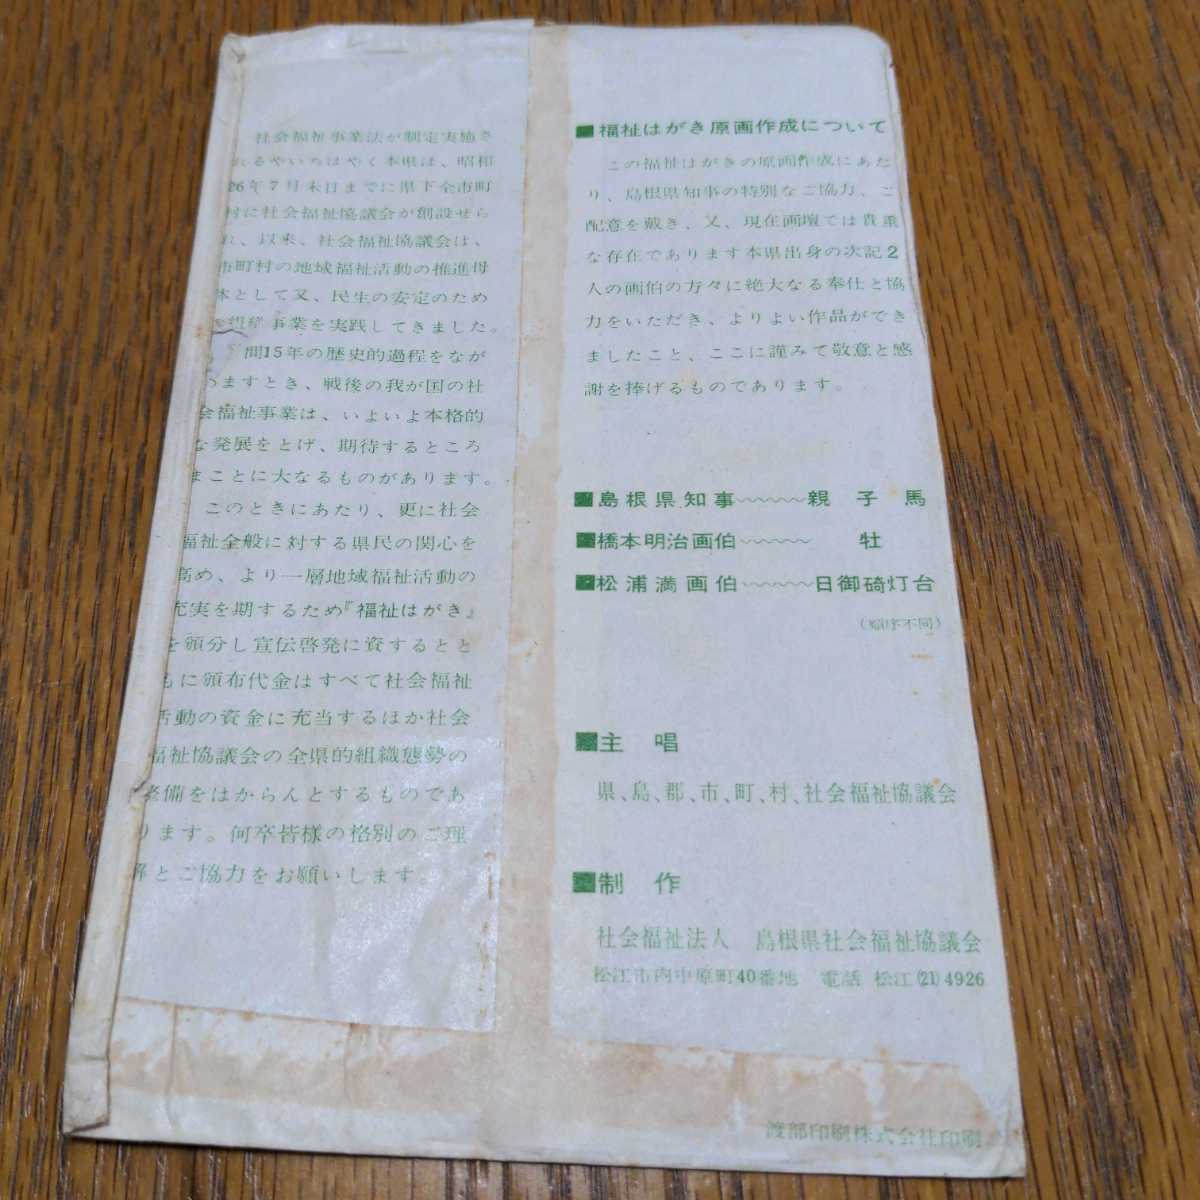 社会福祉事業法が制定実施さ
れるやいちはやく本県は、昭和
26年7月末日までに県下全市町
村に社会福祉協議会が創設せら
れ、以来、社会福祉協議会は、
市町村の地域福祉活動の推進母
体として又、民生の安定のため
事業を実践してきました。
間15年の歴史的過程をなが
めますとき、戦後の我が国の社
会福祉事業は、いよいよ本格的
な発展をとげ、期待するところ
まことに大なるものがあります。
このときにあたり、更に社会
福祉全般に対する県民の関心を
高め、より一層地域福祉活動の
充実を期するため『福祉はがき』
を頒分し宣伝啓発に資するとと
もに頒布代金はすべて社会福祉
活動の資金に充当するほか社会
福祉協議会の全県的組織態勢の
整備をはからんとするものであ
ります。何卒皆様の格別のご理
解とご協力をお願いします。
■福祉はがき原画作成について
この福祉はがきの原画作成にあた
り、島根県知事の特別なご協力、ご
配意を戴き、又、現在画壇では貴重
な存在であります本県出身の次記2
人の画伯の方々に絶大なる奉仕と協
力をいただき、よりよい作品ができ
ましたこと、ここに謹みて敬意と感
謝を捧げるものであります。
■島根県知事〜〜〜〜親子馬
■橋本明治画伯〜〜〜〜牡
■松浦満画伯〜〜〜〜日御碕灯台
(順序不同)
■主唱
県、島、郡、市、町、村、社会福祉協議会
■制作
社会福祉法人 島根県社会福祉協議会
松江市内中原町40番地 電話 松江(21)4926
渡部印刷株式会社印刷